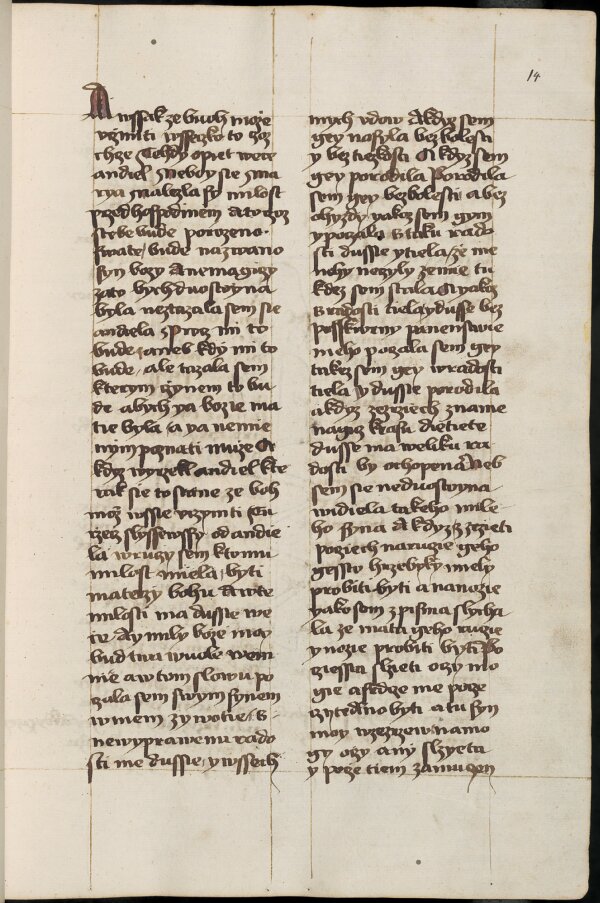 14
A wssak ze buoh može
vczniti wsseczko to zoz
chze Tehdy opiet wece
andiel Neboy sie Ma
rya nalezla sy milost
przed hospodinem a to zoz
s tebe bude porozeno
swate bude nazwano
syn bozy A nemagizy
zato bych duostoyna
byla neztazala sem sie
andiela Proz mi to
bude aneb kdy mi to
bude ale tazala sem
kterym czynem to bu
de abych ya bozie ma
tie byla a ya nemie
nym poznati muze A
kdyz wyrzekl andiel kte
rak sie to stane ze boh
moz wssie vczyniti Tu
rzecz slyssewssy od andie
la w ruzy sem k tomu
milost miela byti
materzy bohu A wte
milosti ma dussie we
ce Ay mily boze moy
bud twa wuole wem
nie a w tom slowu po
zala sem swym synem
w mem zywotie s
newyprawenu rado
sti me dussie y wssech
mych vdow A kdyz sem
gey nosyla bez bolesti
y bez tiezkosti A kdyz sem
gey porodila Porodila
sem gey bez bolesti a bez
ohyzdy yakoz sem gym
y pozala s taku rado
sti dussie y tiela ze me
nohy nezyly zemie tu
kdez sem stala A yakoz
s radosti tiela y dusse bez
posskwrny panenstwie
meho pozala sem gey
takez sem gey w radosti
tiela y dussie porodila
a kdyz zrziech zname
nagiz krasu dietiete
dussie ma weliku ra
dosti by othopena Neb
sem sie neduostoyna
widiela takeho mile
ho syna A kdyz zrzieti
poziech na ruzie geho
gessto hrzebyky miely
probiti byti a na nozie
yako sem z pisma slycha
la ze mata geho ruzie
y nozie probiti byti Po
ziessta slzieti ozy mo
gie a srdze me poze
rzytedlno byti a tu syn
moy wzezrzew na mo
gy ozy any slzyeta
y poze tiem zamuczen